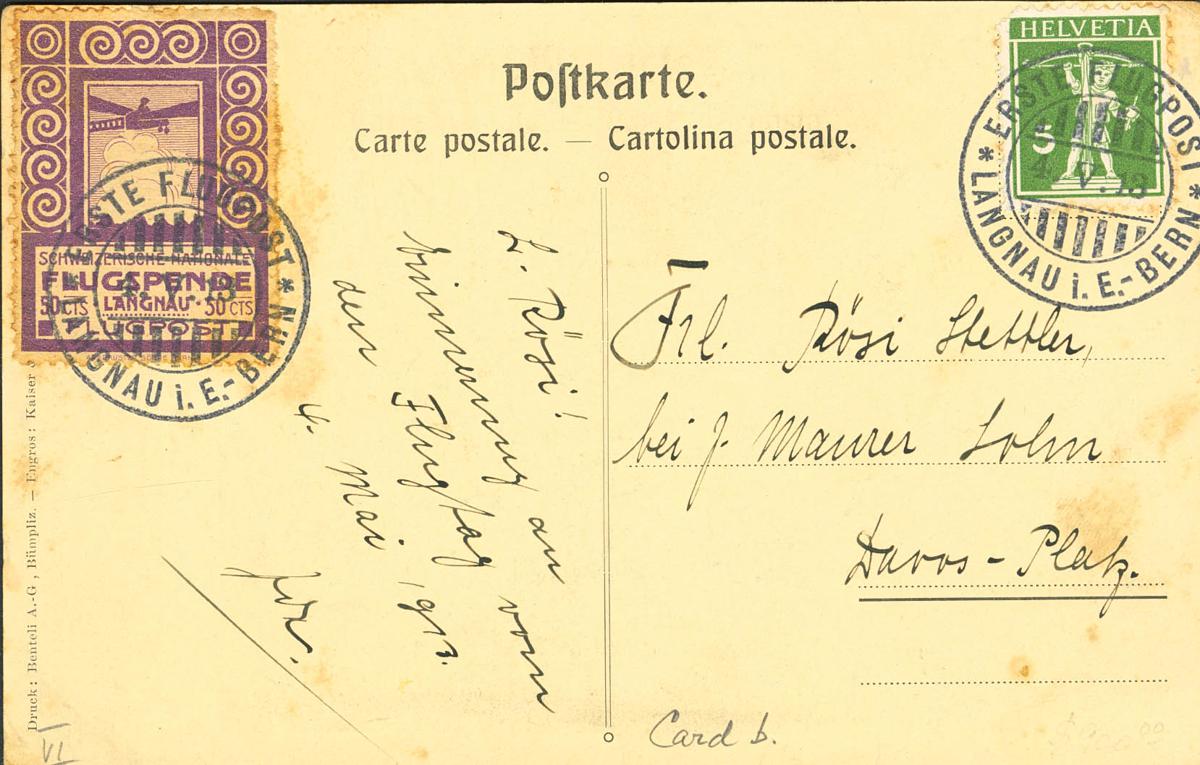 SCHWEIZERISCHE NATIONALE
FLUGSPENDE
50 CTS LANGNAU · 50 CTS
FLUGPOST
* ERSTE FLUGPOST *
LANGNAU i. E.-BERN
4. V. 13
Poſtkarte.
Carte postale. — Cartolina postale.
HELVETIA
5
* ERSTE FLUGPOST *
4. V. 13
LANGNAU i. E.-BERN
L. Rösi!
Erinnerung an
den Flugtag vom
4. Mai 1913.
Frl. Rösi Stettler,
bei J. Maurer Sohn
Davos-Platz.
Druck: Benteli A.-G., Bümpliz. — Engros: Kaiser
VI
Card b.